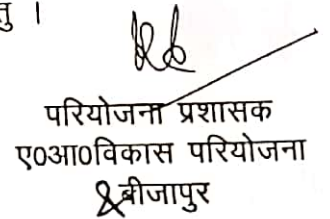 तु ।
परियोजना प्रशासक
ए०आ०विकास परियोजना
बीजापुर